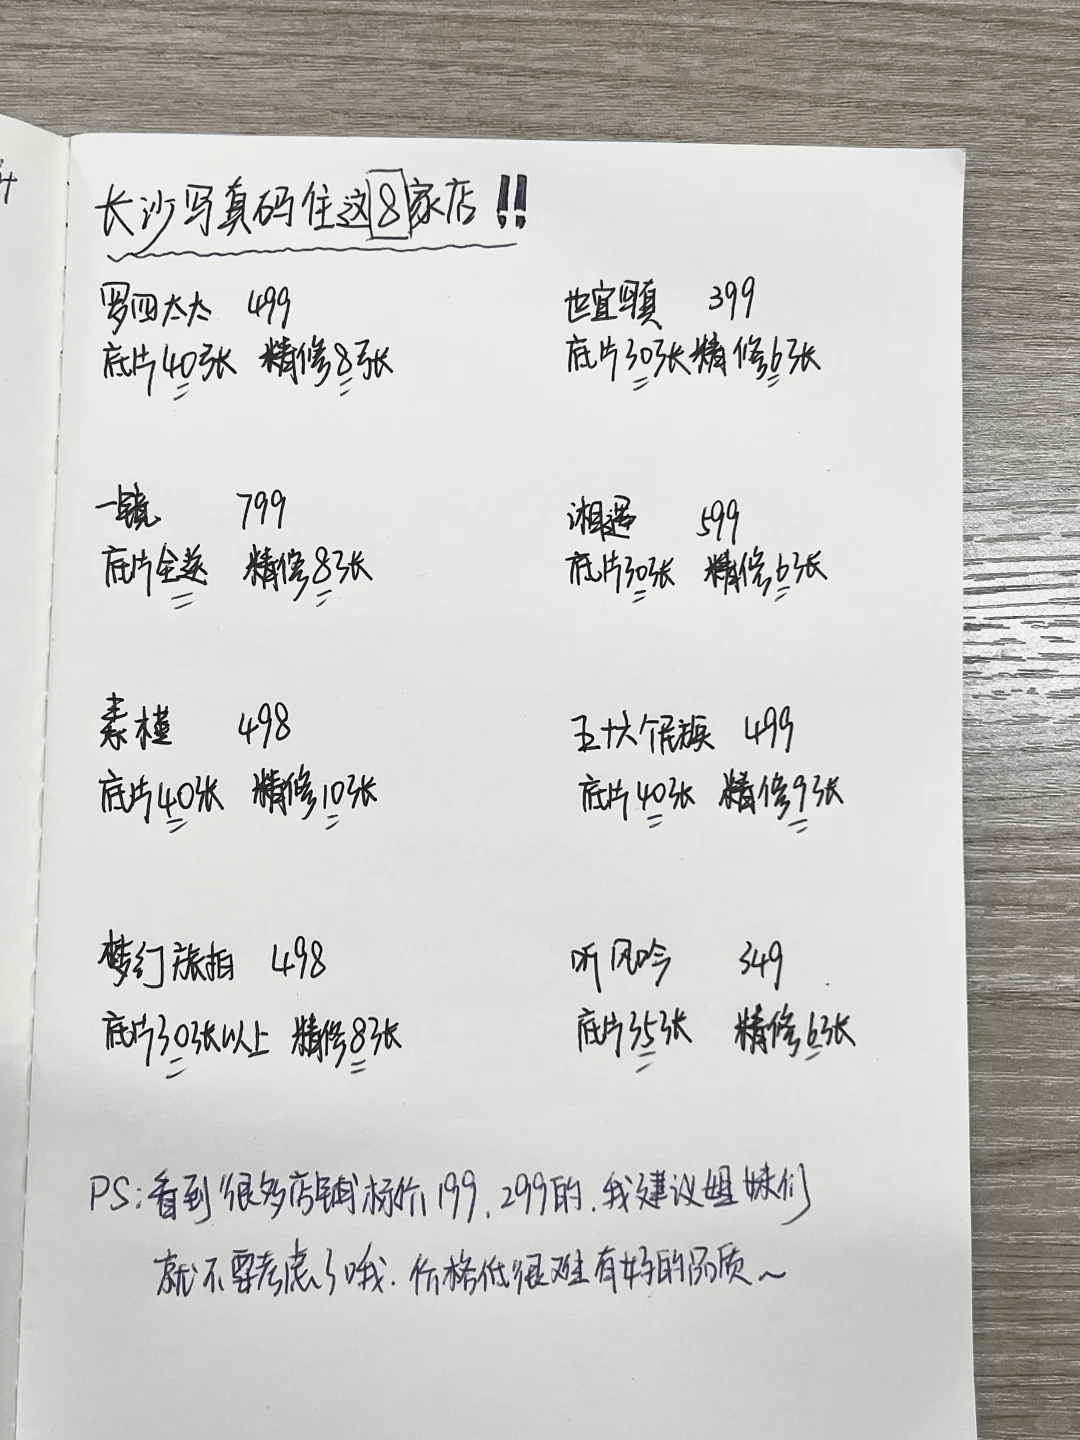 长沙写真码住这8家店!!
罗四太太 499
底片40张 精修8张
世宜写真 399
底片30张 精修6张
一镜 799
底片全送 精修8张
湘遇 599
底片30张 精修6张
素槿 498
底片40张 精修10张
五十六个民族 499
底片40张 精修9张
梦幻旅拍 498
底片30张以上 精修8张
听风吟 349
底片35张 精修6张
PS:看到很多店铺标价199、299的,我建议姐妹们
就不要考虑了哦.价格低很难有好的品质~